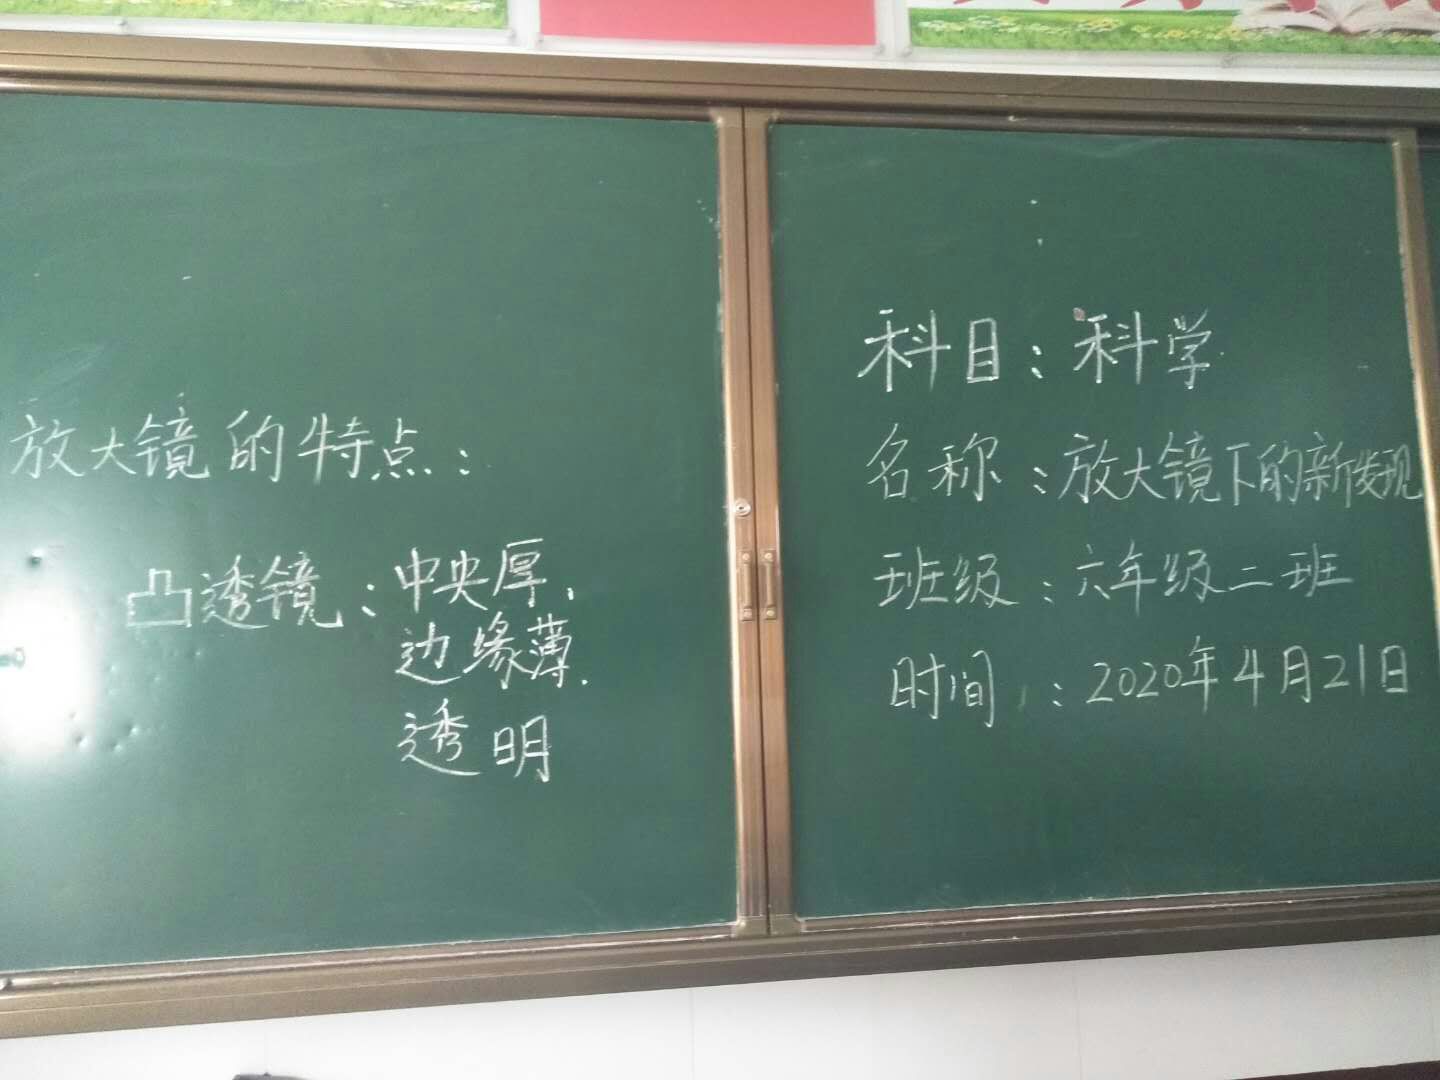 放大镜的特点：
凸透镜：中央厚、
边缘薄、
透明
科目：科学
名称：放大镜下的新发现
班级：六年级二班
时间：2020年4月21日